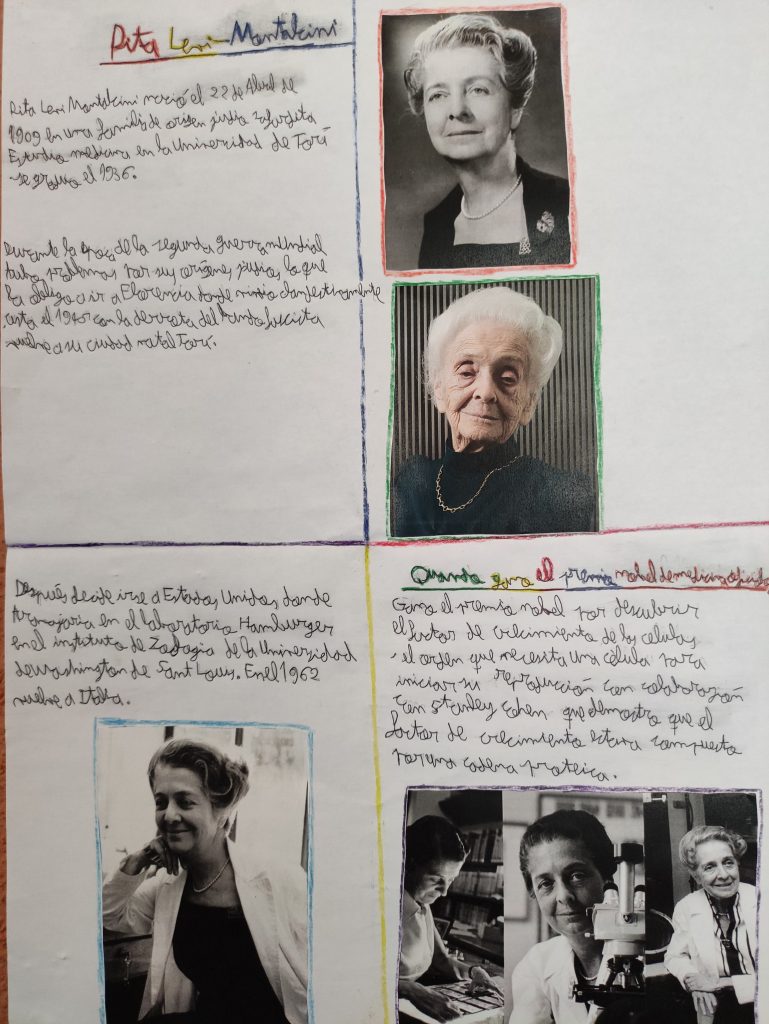 Rita Levi-Montalcini
Rita Levi Montalcini nació el 22 de Abril de
1909 en una familia de origen judio zafardita
Estudio medicina en la Universidad de Turí
se graduo el 1936.
Durante la epoca de la segunda guerra mundial
tubo problemas por sus orígenes judios, lo que
la obligo a ir a Florencia donde vivvio clandestinamente
asta el 1945 con la derrota del mundo fascista
vuelve a su ciudad natal Turí.
Después decide irse a Estados Unidos, donde
tranajaria en el laboratorio Hamburger
en el instituto de Zoologia de la Universidad
de Washington de Saint Louis. En el 1962
vuelve a Italia.
Quando gana el premio nobel de medicina
Gana el premio nobel por descubrir
el factor de crecimiento de las células,
el orden que necesita una célula para
iniciar su reproducción con colaborazión
con stanley cohen que demostro que el
factor de crecimiento estava compuesto
por una cadena proteica.